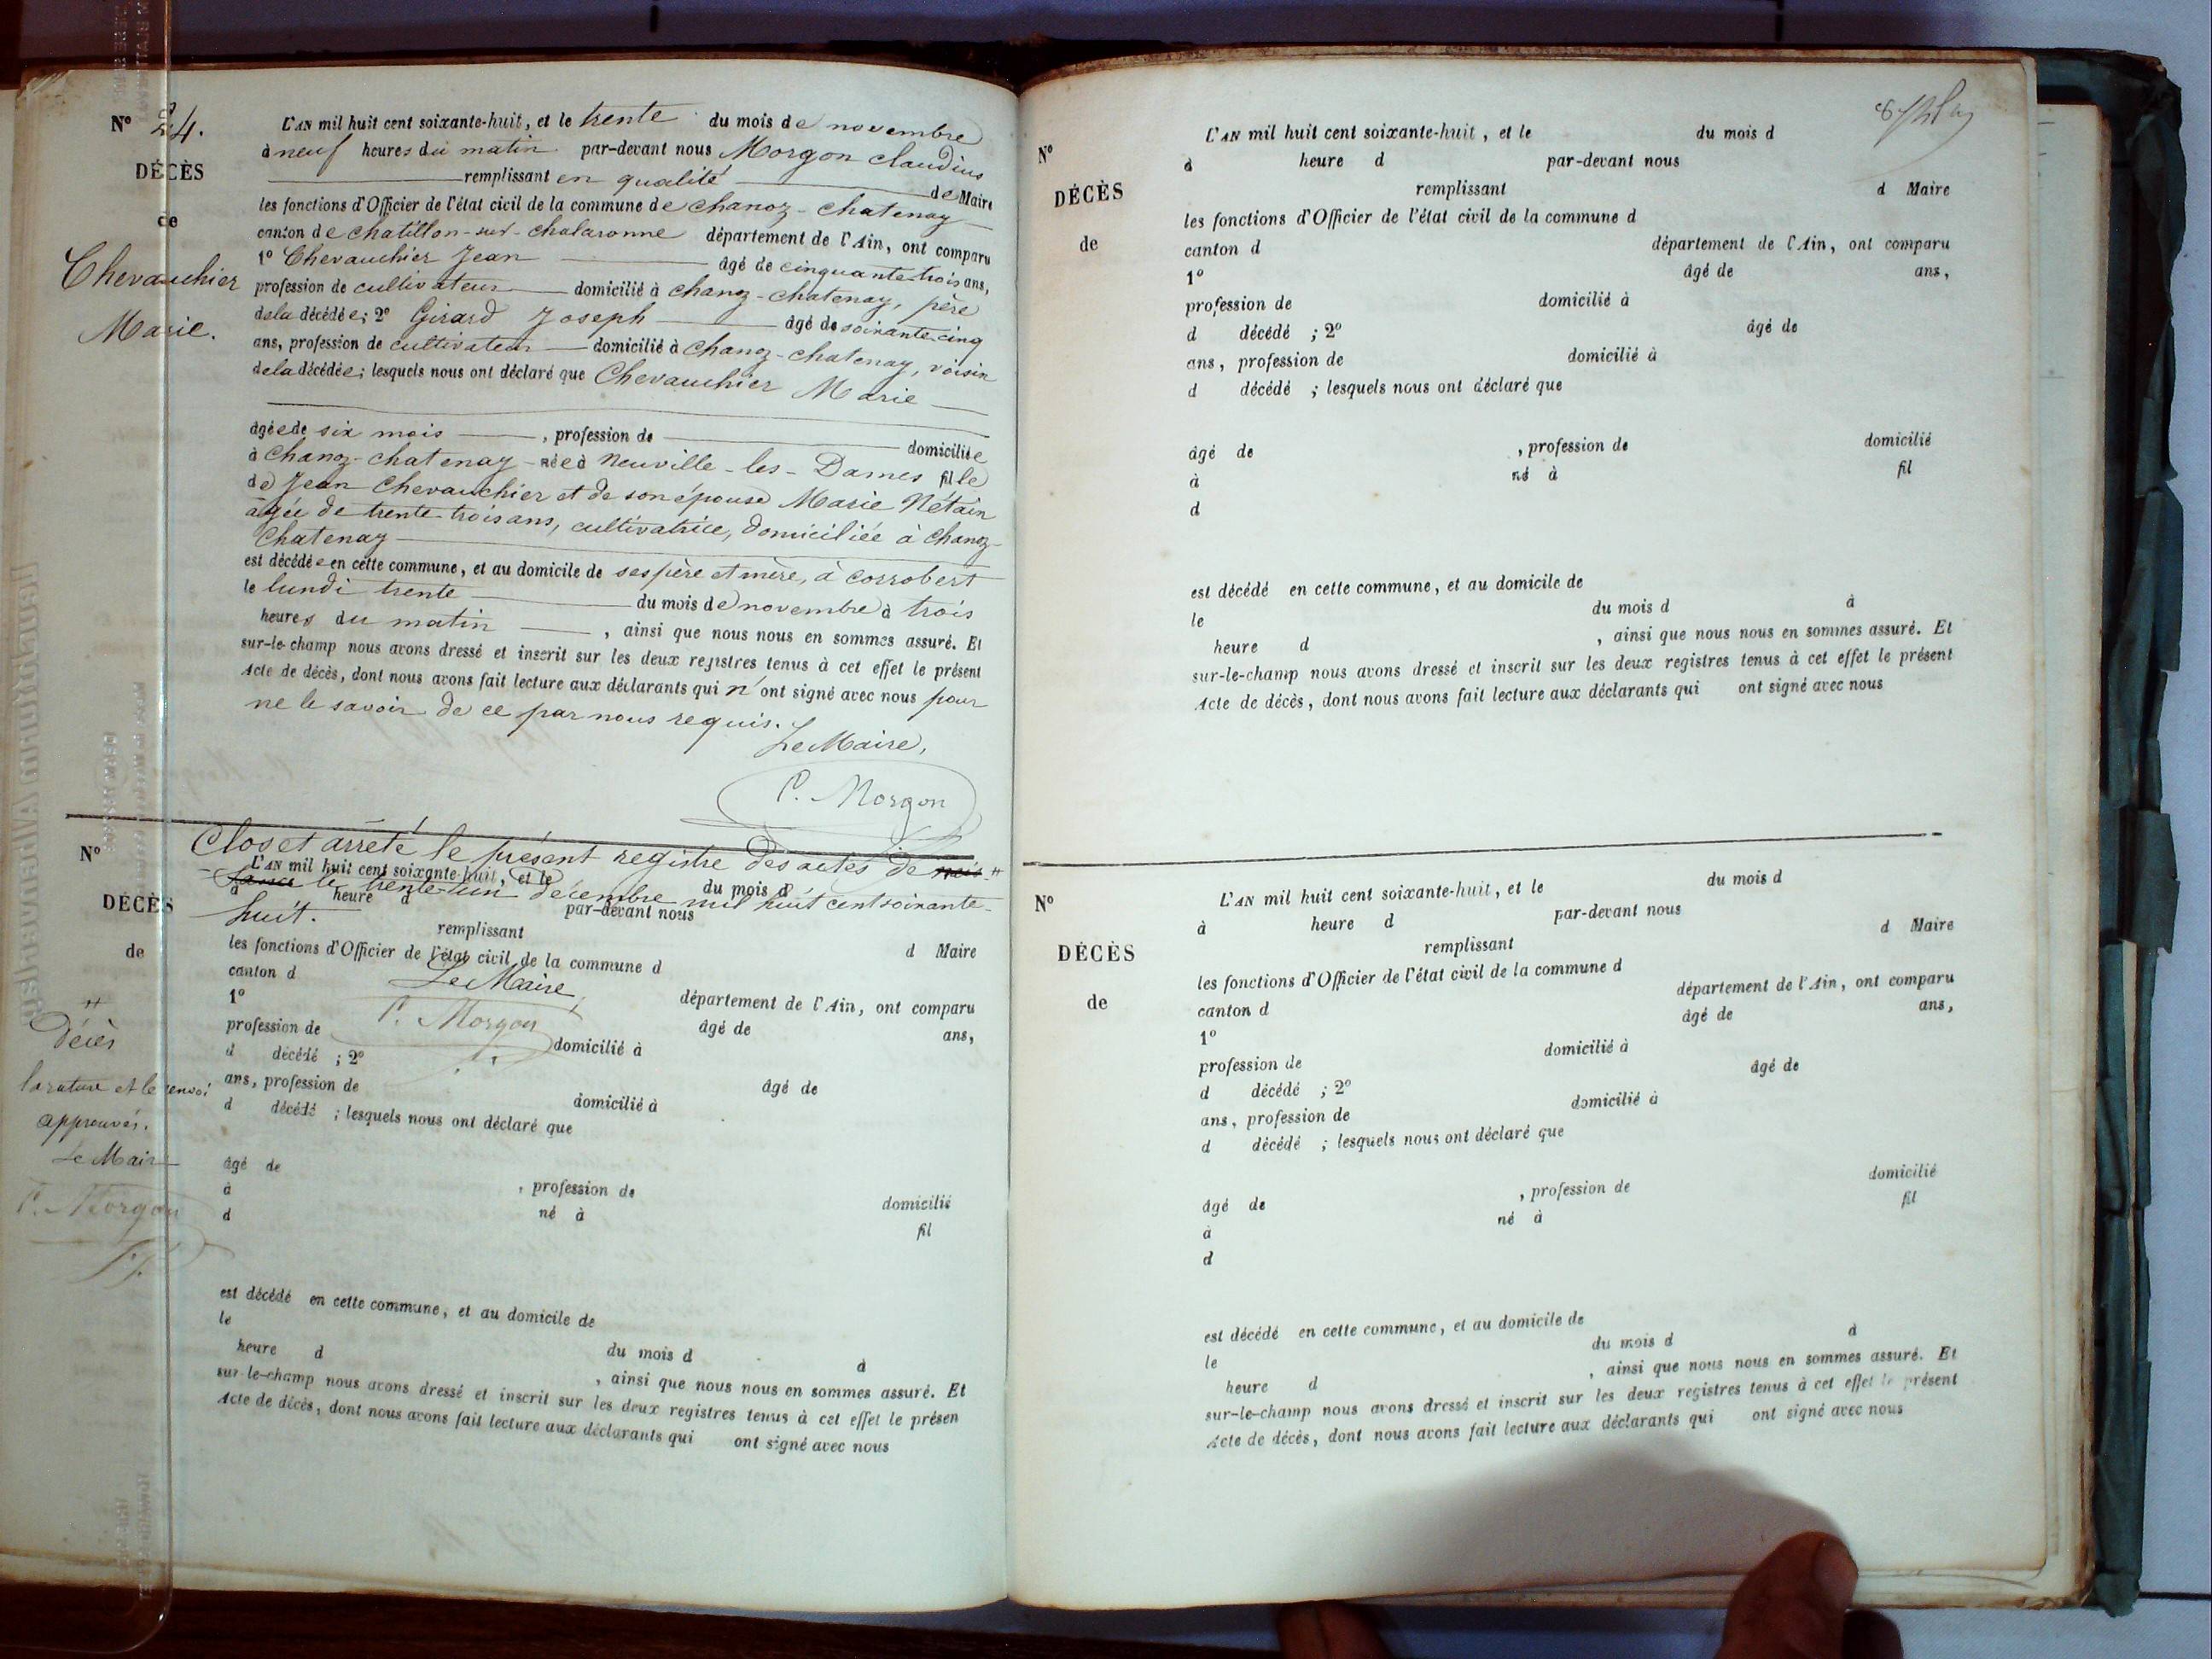 N° 24.
DÉCÈS
de
Chevauchier
Marie.
L'AN mil huit cent soixante-huit, et le trente du mois de novembre
à neuf heures du matin par-devant nous Morgon claudius
remplissant en qualité de Maire
les fonctions d'Officier de l'état civil de la commune de chanoz-chatenay
canton de chatillon-sur-chalaronne département de l'Ain, ont comparu
1° Chevauchier Jean âgé de cinquante-trois ans,
profession de cultivateur domicilié à chanoz-chatenay, père
de la décédée; 2° Girard Joseph âgé de soixante-cinq
ans, profession de cultivateur domicilié à chanoz-chatenay, voisin
de la décédée; lesquels nous ont déclaré que Chevauchier Marie
âgée de six mois, profession de domiciliée
à chanoz-chatenay née à Neuville-les-Dames fille
de Jean Chevauchier et de son épouse Marie Nétain
agée de trente trois ans, cultivatrice, domiciliée à chanoz-
chatenay
est décédée en cette commune, et au domicile de ses père et mère, à corrobert
le lundi trente du mois de novembre à trois
heures du matin, ainsi que nous nous en sommes assuré. Et
sur-le-champ nous avons dressé et inscrit sur les deux registres tenus à cet effet le présent
Acte de décès, dont nous avons fait lecture aux déclarants qui n'ont signé avec nous pour
ne le savoir de ce par nous requis.
Le Maire,
C. Morgon
Clos et arrêté le présent registre des actes de nais-"
sance le trente-un décembre mil huit cent soixante-
huit.
Le Maire,
C. Morgon
"
Décès
la rature et le renvoi
approuvés.
Le Maire
C. Morgon
N°
DÉCÈS
de
L'AN mil huit cent soixante-huit, et le du mois d
à heure d par-devant nous
remplissant d Maire
les fonctions d'Officier de l'état civil de la commune d
canton d département de l'Ain, ont comparu
1° âgé de ans,
profession de domicilié à
d décédé ; 2° âgé de
ans, profession de domicilié à
d décédé ; lesquels nous ont déclaré que
âgé de , profession de domicilié
à né à fil
d
est décédé en cette commune, et au domicile de
le du mois d à
heure d , ainsi que nous nous en sommes assuré. Et
sur-le-champ nous avons dressé et inscrit sur les deux registres tenus à cet effet le présen
Acte de décès, dont nous avons fait lecture aux déclarants qui ont signé avec nous
N°
DÉCÈS
de
L'AN mil huit cent soixante-huit, et le du mois d
à heure d par-devant nous
remplissant d Maire
les fonctions d'Officier de l'état civil de la commune d
canton d département de l'Ain, ont comparu
1° âgé de ans,
profession de domicilié à
d décédé ; 2° âgé de
ans, profession de domicilié à
d décédé ; lesquels nous ont déclaré que
âgé de , profession de domicilié
à né à fil
d
est décédé en cette commune, et au domicile de
le du mois d à
heure d , ainsi que nous nous en sommes assuré. Et
sur-le-champ nous avons dressé et inscrit sur les deux registres tenus à cet effet le présent
Acte de décès, dont nous avons fait lecture aux déclarants qui ont signé avec nous
N°
DÉCÈS
de
L'AN mil huit cent soixante-huit, et le du mois d
à heure d par-devant nous
remplissant d Maire
les fonctions d'Officier de l'état civil de la commune d
canton d département de l'Ain, ont comparu
1° âgé de ans,
profession de domicilié à
d décédé ; 2° âgé de
ans, profession de domicilié à
d décédé ; lesquels nous ont déclaré que
âgé de , profession de domicilié
à né à fil
d
est décédé en cette commune, et au domicile de
le du mois d à
heure d , ainsi que nous nous en sommes assuré. Et
sur-le-champ nous avons dressé et inscrit sur les deux registres tenus à cet effet le présent
Acte de décès, dont nous avons fait lecture aux déclarants qui ont signé avec nous